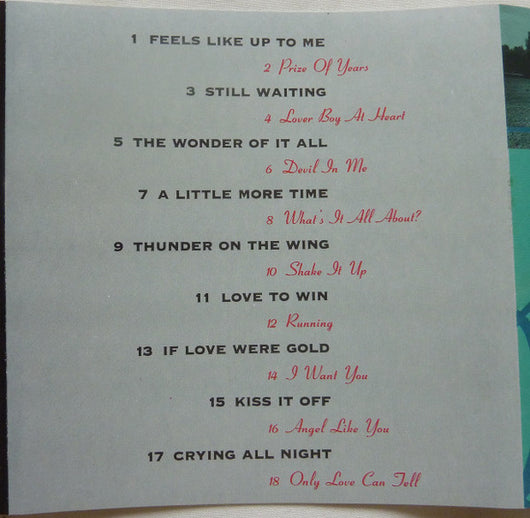 1 FEELS LIKE UP TO ME
2 Prize Of Years
3 STILL WAITING
4 Lover Boy At Heart
5 THE WONDER OF IT ALL
6 Devil In Me
7 A LITTLE MORE TIME
8 What's It All About?
9 THUNDER ON THE WING
10 Shake It Up
11 LOVE TO WIN
12 Running
13 IF LOVE WERE GOLD
14 I Want You
15 KISS IT OFF
16 Angel Like You
17 CRYING ALL NIGHT
18 Only Love Can Tell